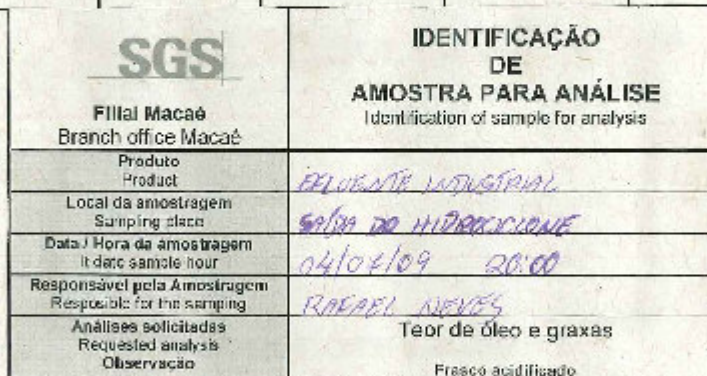 SGS
Filial Macaé
Branch office Macaé
IDENTIFICAÇÃO
DE
AMOSTRA PARA ANÁLISE
Identification of sample for analysis
Produto
Product
EFLUENTE INDUSTRIAL
Local da amostragem
Sampling place
SAÍDA DO HIDROCICLONE
Data / Hora da amostragem
It date sample hour
20:00
Responsável pela Amostragem
Resposible for the samping
RAFAEL NEVES
Análises solicitadas
Requested analysis
Teor de óleo e graxas
Observação
Frasco acidificado